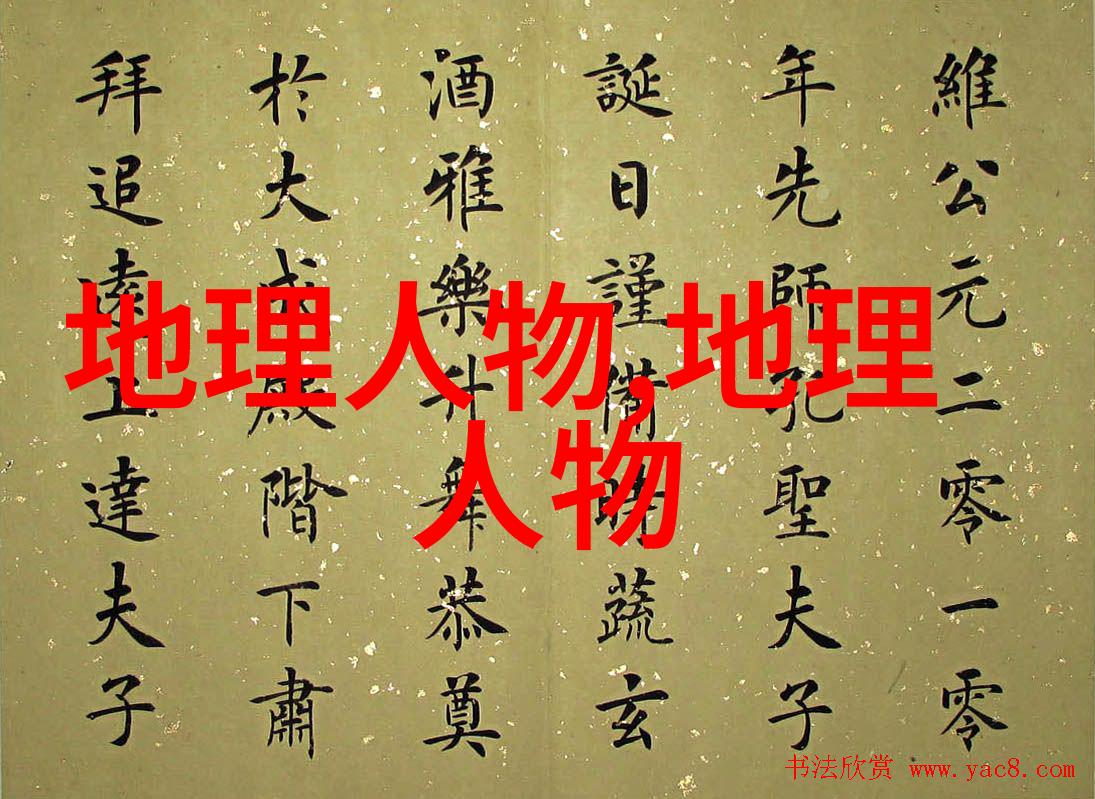 維公元二零一零
年先師孔聖夫子
誕日謹備時蔬玄
酒雅樂升舞恭奠
於大成殿階下肅
拜追遠上達夫子
地理人物,地理
人物
书法欣赏 www.yac8.com